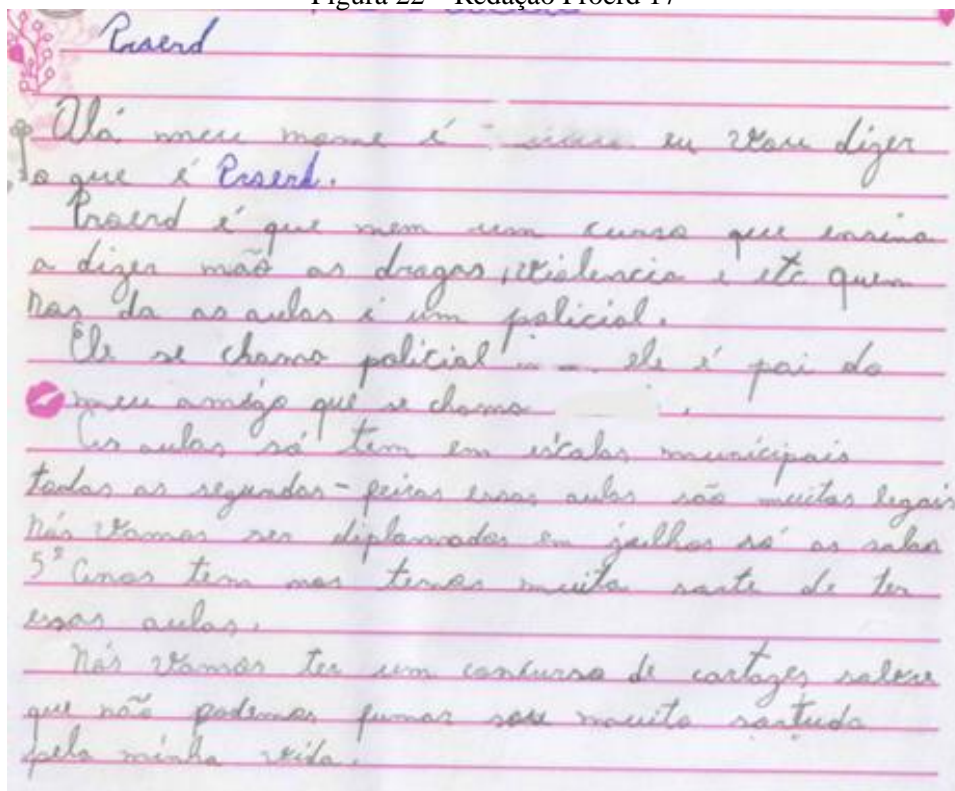 Figura 22 – Redação Proerd 17
Proerd
Olá meu nome é eu vou dizer
o que é Proerd.
Proerd é que nem um curso que ensina
a dizer não as drogas, violencia e etc quem
nos da as aulas é um policial.
Ele se chama policial ele é pai do
meu amigo que se chama .
As aulas só tem em escolas municipais
todas as segundas-feiras essas aulas são muitas legais
nós vamos ser diplomados em julhos só as salas
5º Anos tem nos temos muita sorte de ter
essas aulas.
Nós vamos ter um concurso de cartazes sobre
que não podemos fumar sou muito sortuda
pela minha vida.